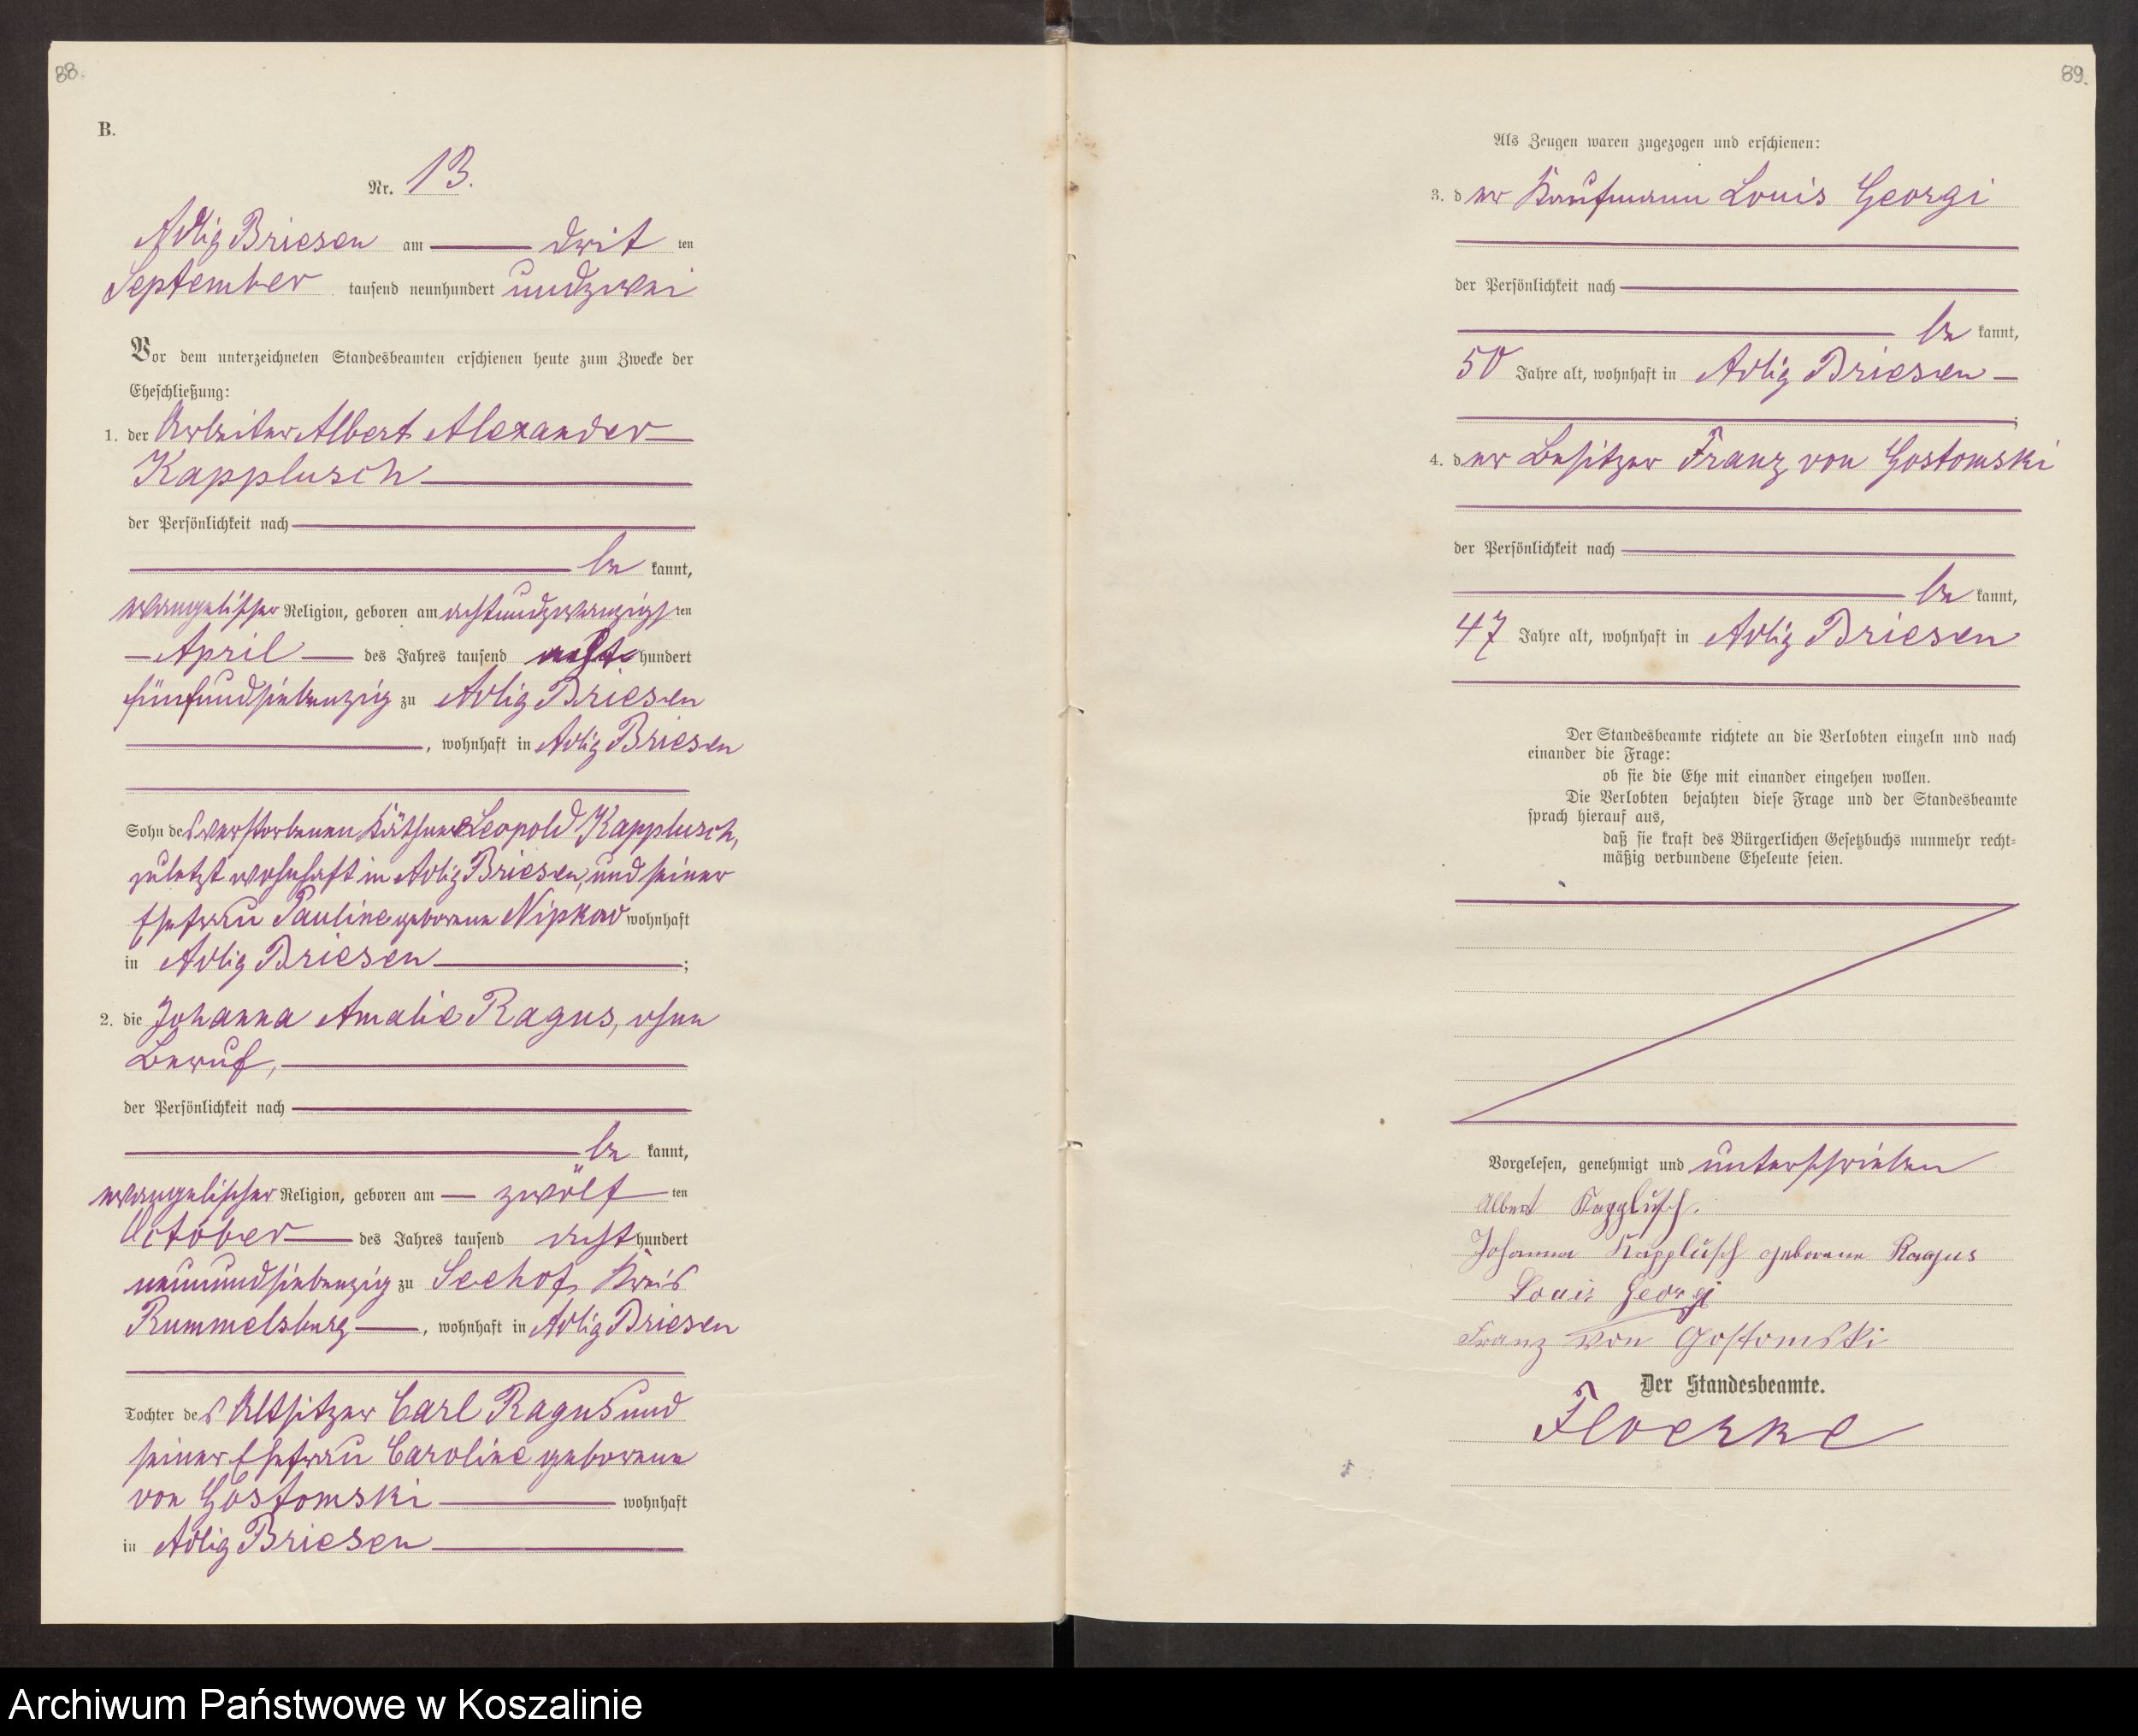 88.
B.
Nr. 13.
Adlig Briesen am dritten
September tausend neunhundert undzwei
Vor dem unterzeichneten Standesbeamten erschienen heute zum Zwecke der
Eheschließung:
1. der Arbeiter Albert Alexander
Kapplusch
der Persönlichkeit nach
bekannt,
evangelischer Religion, geboren am achtundzwanzigsten
April des Jahres tausend achthundert
fünfundsiebenzig zu Adlig Briesen
, wohnhaft in Adlig Briesen
Sohn des verstorbenen Käthners Leopold Kapplusch,
zuletzt wohnhaft in Adlig Briesen, und seiner
Ehefrau Pauline geborene Nipkow wohnhaft
in Adlig Briesen ;
2. die Johanna Amalie Ragus, ohne
Beruf,
der Persönlichkeit nach
bekannt,
evangelischer Religion, geboren am zwölften
October des Jahres tausend achthundert
neunundsiebenzig zu Seehof, Kreis
Rummelsburg , wohnhaft in Adlig Briesen
Tochter des Altsitzer Carl Ragus und
seiner Ehefrau Caroline geborene
von Gostomski wohnhaft
in Adlig Briesen
89.
Als Zeugen waren zugezogen und erschienen:
3. der Kaufmann Louis Georgi
der Persönlichkeit nach
bekannt,
50 Jahre alt, wohnhaft in Adlig Briesen
;
4. der Besitzer Franz von Gostomski
der Persönlichkeit nach
bekannt,
47 Jahre alt, wohnhaft in Adlig Briesen
Der Standesbeamte richtete an die Verlobten einzeln und nach
einander die Frage:
ob sie die Ehe mit einander eingehen wollen.
Die Verlobten bejahten diese Frage und der Standesbeamte
sprach hierauf aus,
daß sie kraft des Bürgerlichen Gesetzbuchs nunmehr recht-
mäßig verbundene Eheleute seien.
Vorgelesen, genehmigt und unterschrieben
Albert Kapplusch.
Johanna Kapplusch geborene Ragus
Louis Georgi
Franz von Gostomski
Der Standesbeamte.
Floerke
Archiwum Państwowe w Koszalinie